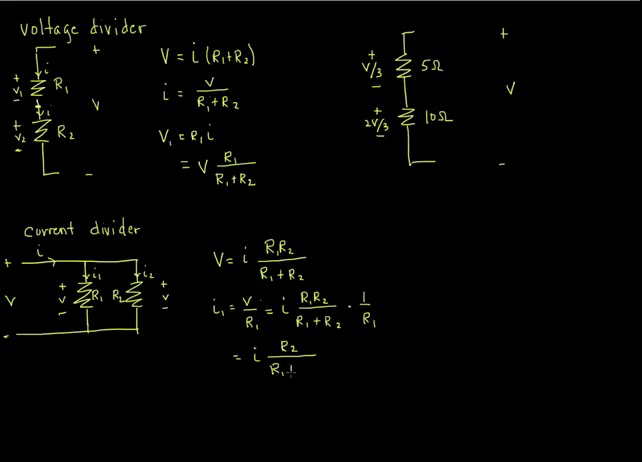 voltage divider
+
i
+
V₁
-
R₁
i
V
+
V₂
-
R₂
-
V = i (R₁+R₂)
i = V / (R₁+R₂)
V₁ = R₁ i
= V R₁ / (R₁+R₂)
+
+
V/3
-
5Ω
V
+
2V/3
-
10Ω
-
current divider
i
+
i₁
i₂
V
+
V
-
R₁
R₂
+
V
-
-
V = i R₁R₂ / (R₁+R₂)
i₁ = V/R₁ = i R₁R₂ / (R₁+R₂) · 1/R₁
= i R₂ / R₁+